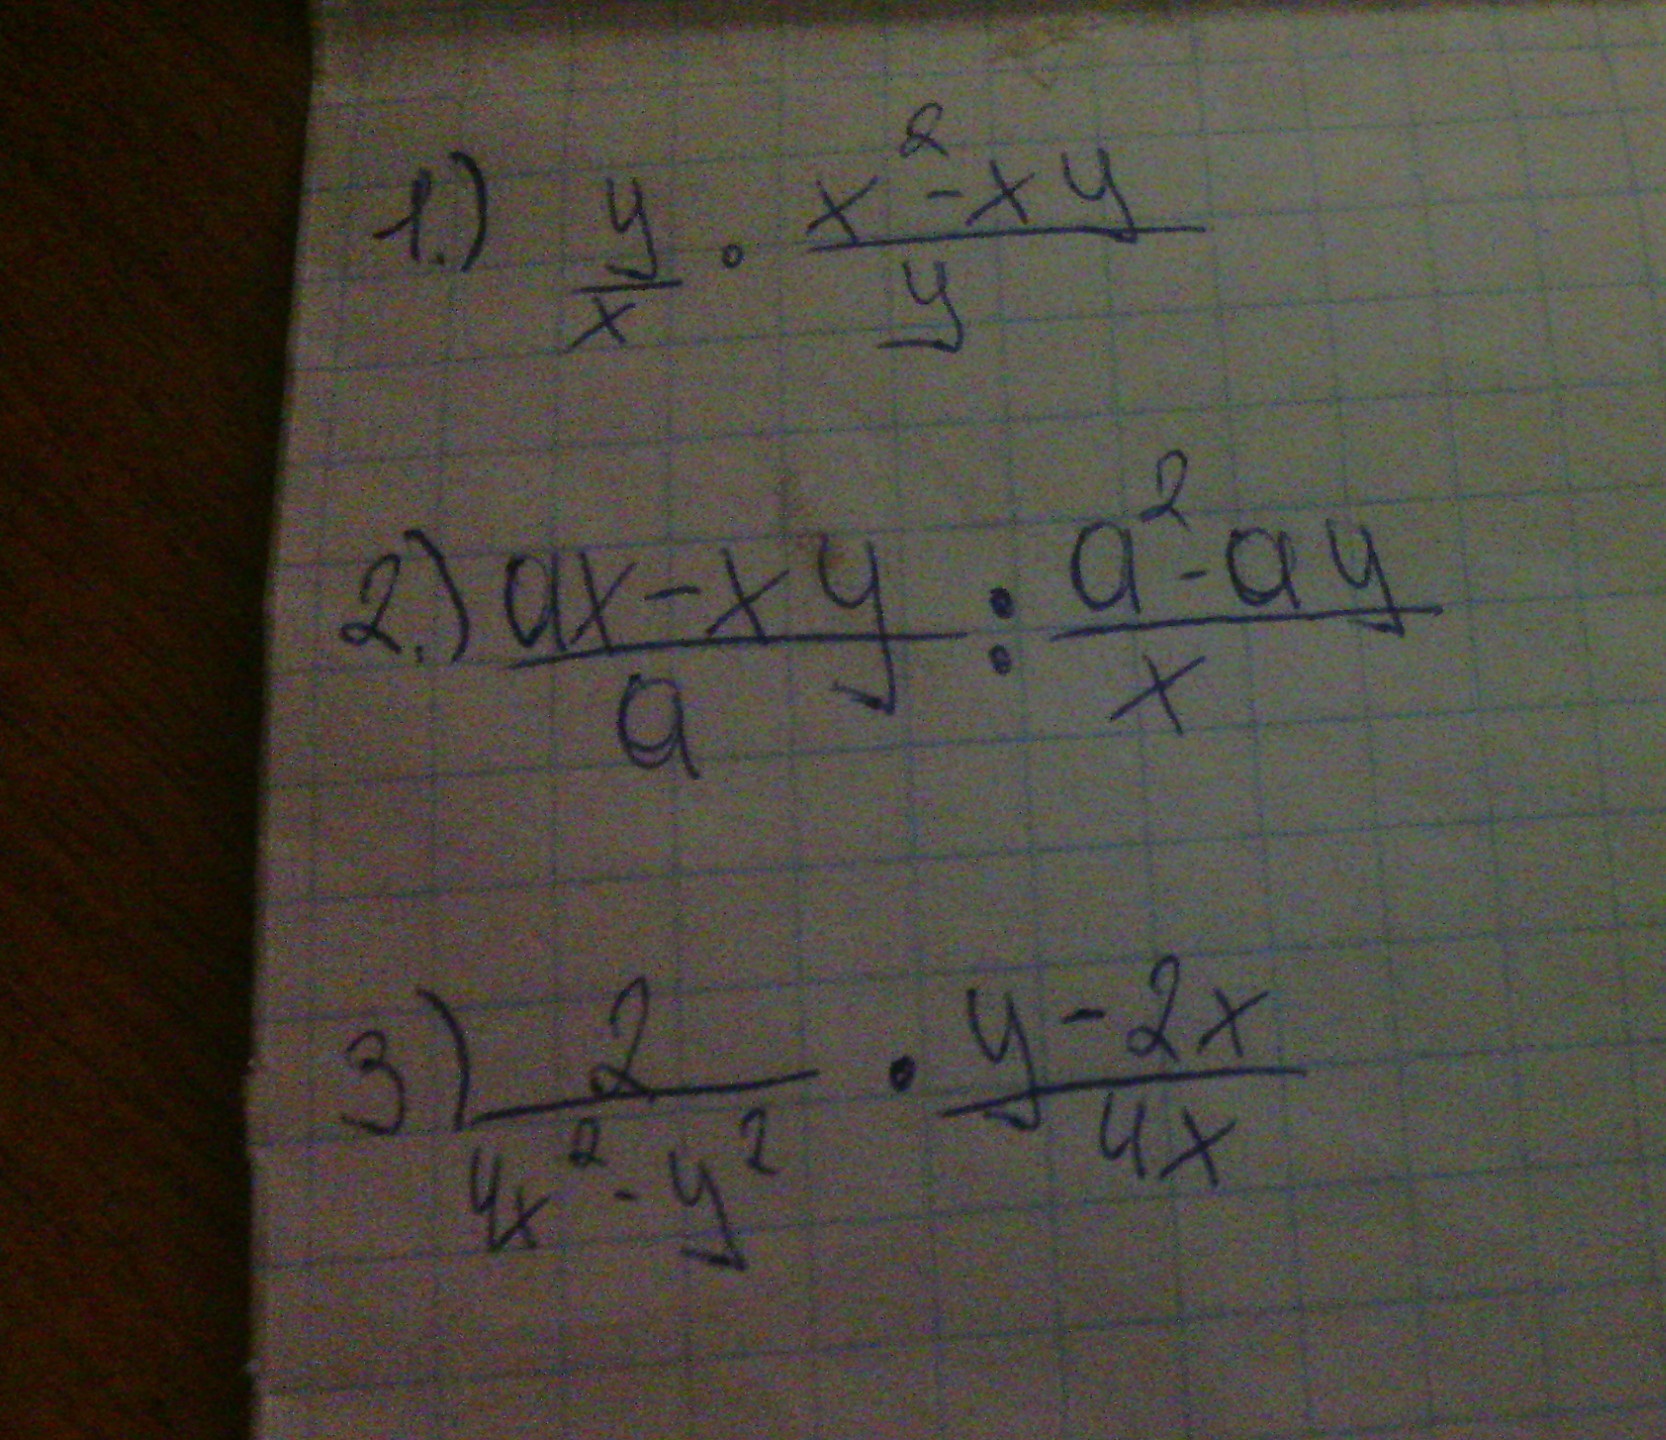 1.) y/x · (x² - xy)/y
2.) (ax - xy)/a : (a² - ay)/x
3) 2/(4x² - y²) · (y - 2x)/(4x)